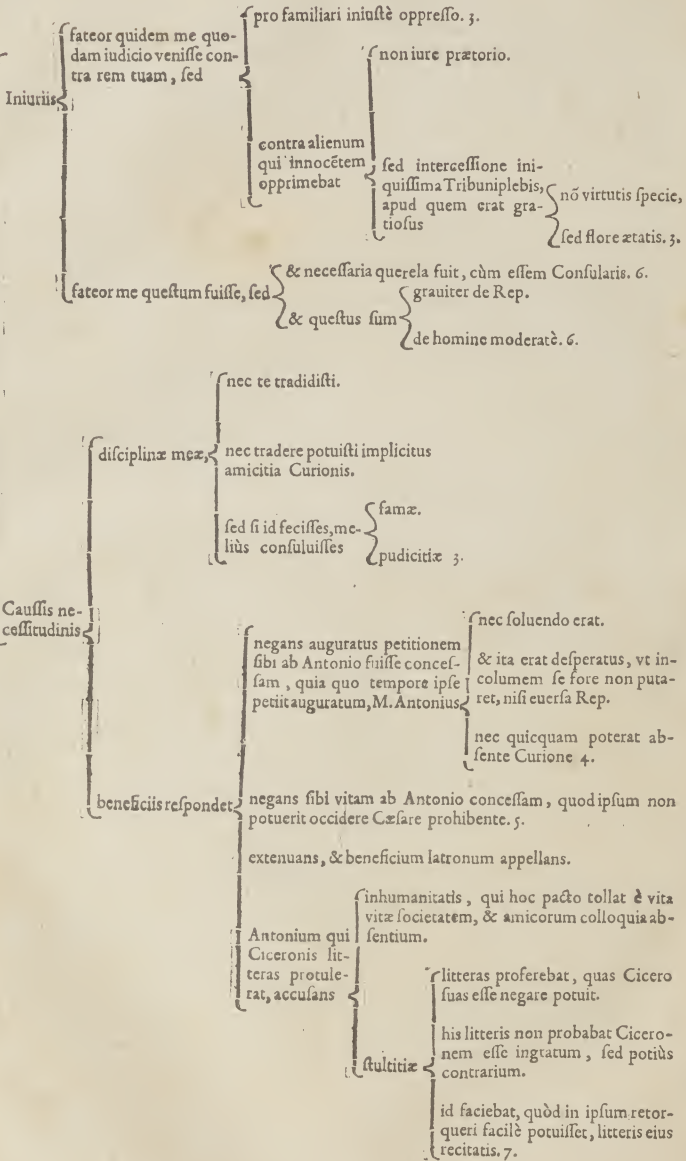 Iniuriis
fateor quidem me quo-
dam iudicio venisse con-
tra rem tuam, sed
pro familiari iniustè oppresso. 3.
contra alienum
qui innocẽtem
opprimebat
non iure prætorio.
sed intercessione ini-
quissima Tribuniplebis,
apud quem erat gra-
tiosus
nõ virtutis specie,
sed flore ætatis. 3.
fateor me questum fuisse, sed
& necessaria querela fuit, cùm essem Consularis. 6.
& questus sum
grauiter de Rep.
de homine moderatè. 6.
Caussis ne-
cessitudinis
disciplinæ meæ,
nec te tradidisti.
nec tradere potuisti implicitus
amicitia Curionis.
sed si id fecisses, me-
liùs consuluisses
famæ.
pudicitiæ 3.
beneficiis respondet
negans auguratus petitionem
sibi ab Antonio fuisse conces-
sam, quia quo tempore ipse
petiit auguratum, M. Antonius
nec soluendo erat.
& ita erat desperatus, vt in-
columem se fore non puta-
ret, nisi euersa Rep.
nec quicquam poterat ab-
sente Curione 4.
negans sibi vitam ab Antonio concessam, quod ipsum non
potuerit occidere Cæsare prohibente. 5.
extenuans, & beneficium latronum appellans.
Antonium qui
Ciceronis lit-
teras protule-
rat, accusans
inhumanitatis, qui hoc pacto tollat è vita
vitæ societatem, & amicorum colloquia ab-
sentium.
stultitiæ
litteras proferebat, quas Cicero
suas esse negare potuit.
his litteris non probabat Cicero-
nem esse ingratum, sed potiùs
contrarium.
id faciebat, quòd in ipsum retor-
queri facilè potuisset, litteris eius
recitatis. 7.